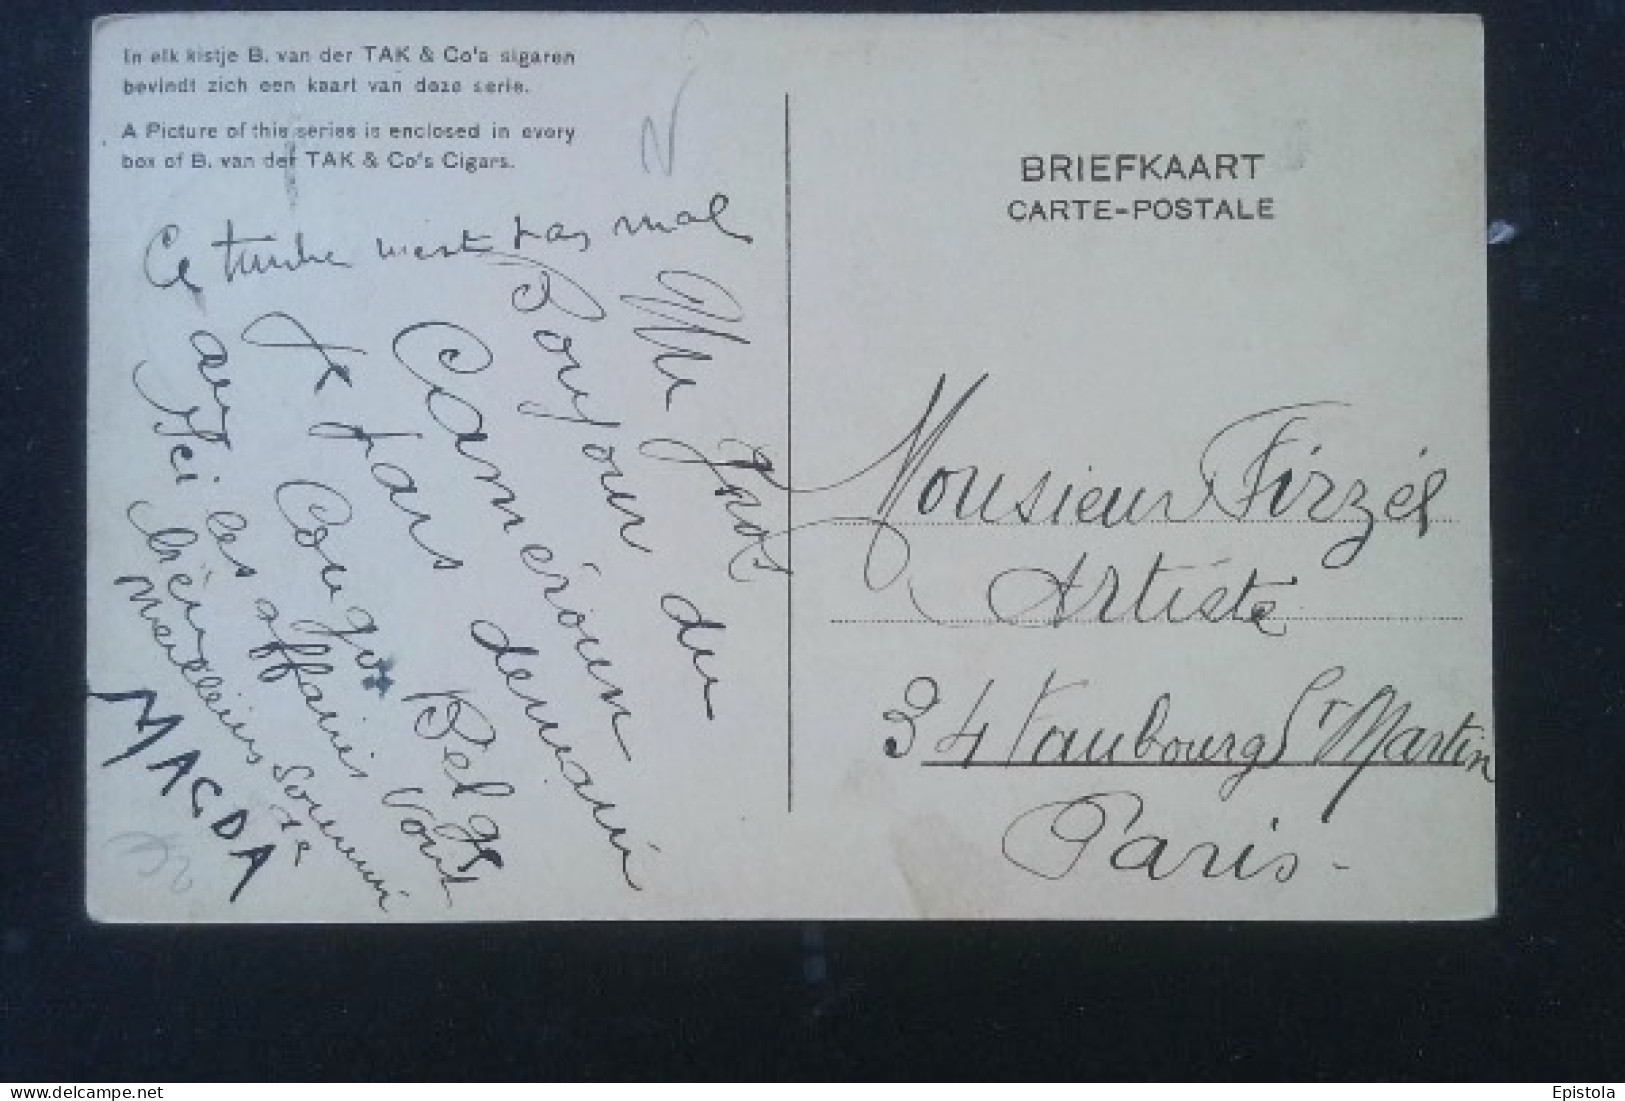 In elk kistje B. van der TAK & Co's sigaren
bevindt zich een kaart van deze serie.
A Picture of this series is enclosed in every
box of B. van der TAK & Co's Cigars.
Ce timbre n'est pas mal
Bonjour du
Cameroun
Je pars demain
au Congo Belge
Ici les affaires vont
bien
meilleurs souvenirs
MAGDA
BRIEFKAART
CARTE-POSTALE
Monsieur Firzel
Artiste
34 Faubourg St Martin
Paris-
Epistola